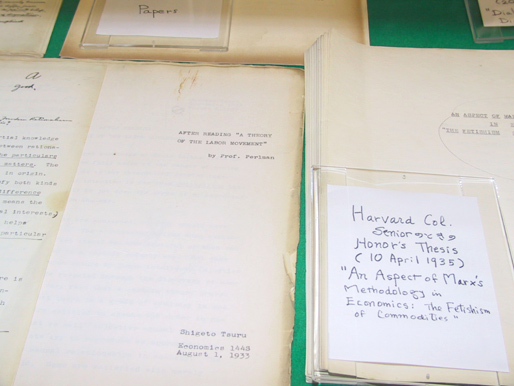 Papers
A
good.
tial knowledge
between nation-
the particular
matters. The
is in origin.
both kinds
difference
means the
interests)
help
particular
AFTER READING "A THEORY
OF THE LABOR MOVEMENT"
by Prof. Perlman
Shigeto Tsuru
Economics 144S
August 1, 1933
AN ASPECT OF
IN
"THE FETISHISM
Harvard Col.
Senior のときの
Honor's Thesis
( 10 April 1935)
"An Aspect of Marx's
Methodology in
Economics: The Fetishism
of Commodities"